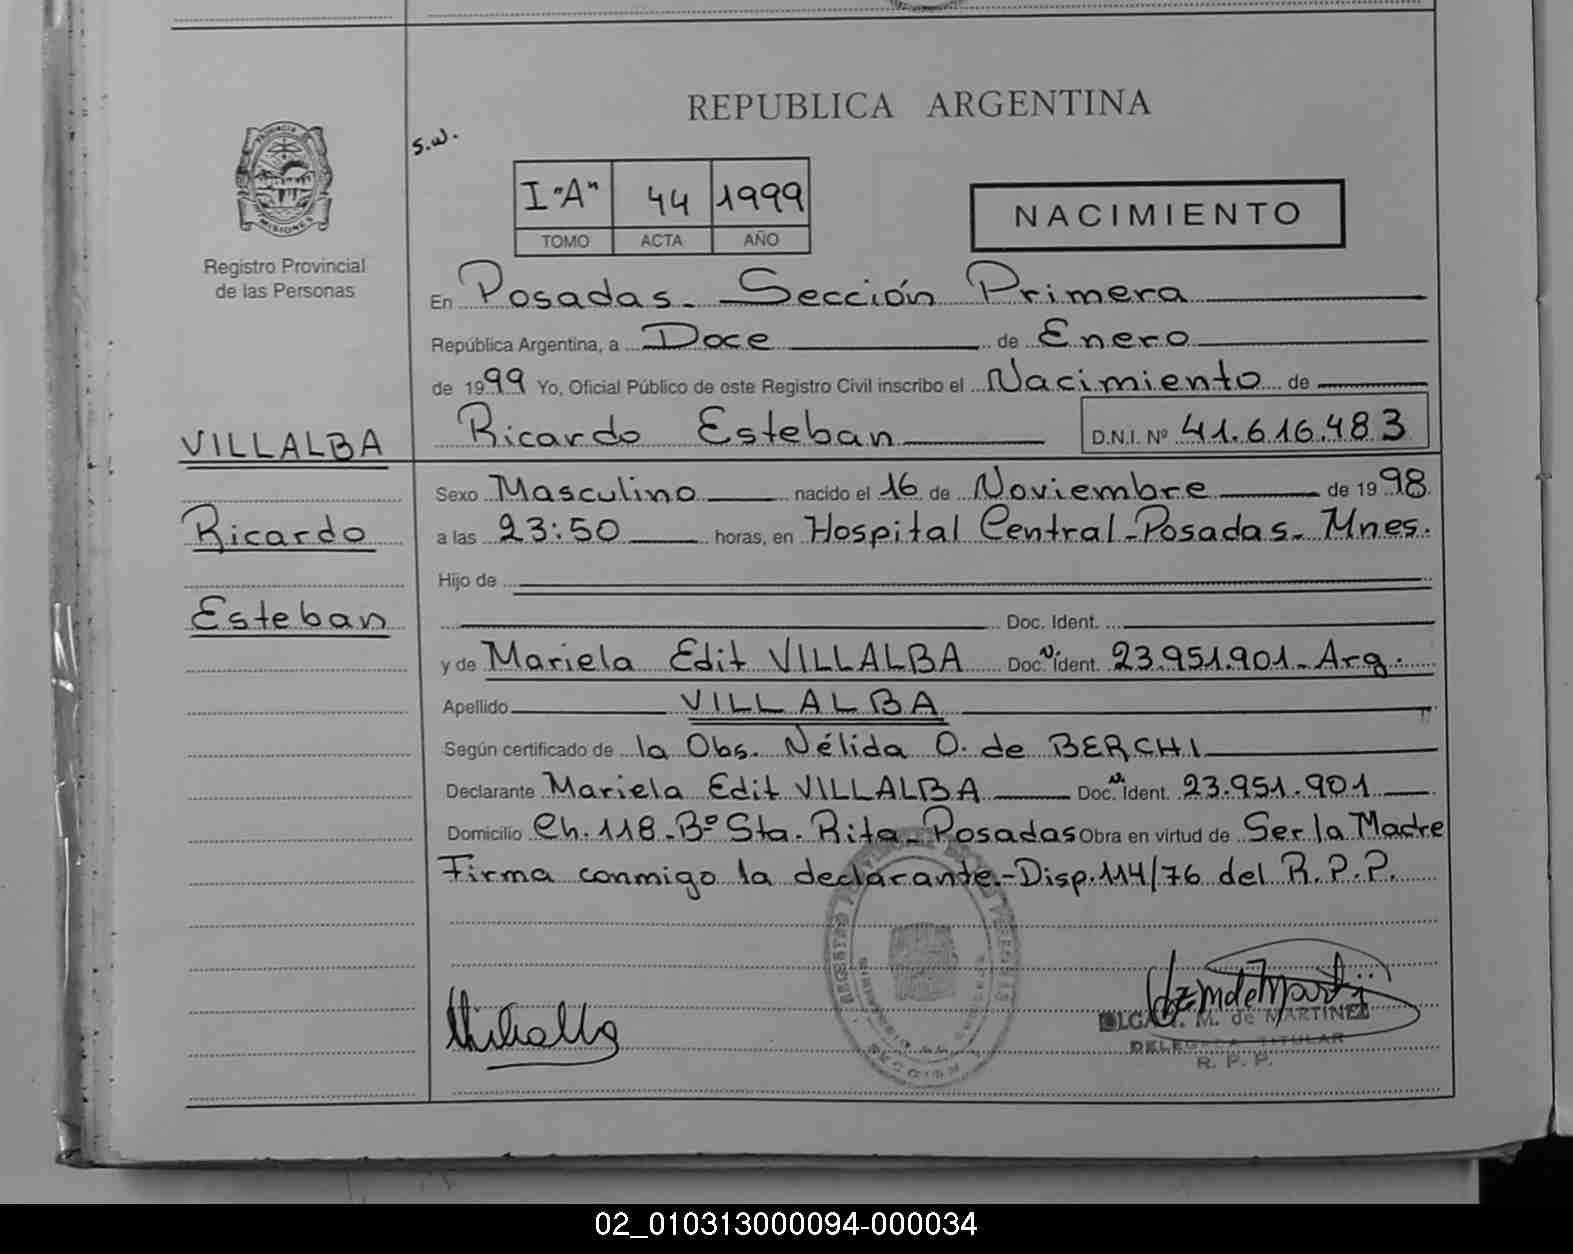 REPUBLICA ARGENTINA
s.w.
PROVINCIA DE
MISIONES
Registro Provincial
de las Personas
I "A" 44 1999
TOMO ACTA AÑO
NACIMIENTO
En Posadas - Sección Primera
República Argentina, a Doce de Enero
de 1999 Yo, Oficial Público de este Registro Civil inscribo el Nacimiento de
Ricardo Esteban D.N.I. Nº 41.616.483
VILLALBA
Ricardo
Esteban
Sexo Masculino nacido el 16 de Noviembre de 1998
a las 23:50 horas, en Hospital Central - Posadas - Mnes.
Hijo de
Doc. Ident.
y de Mariela Edit VILLALBA Doc. Ident. 23.951.901 - Arg.
Apellido VILLALBA
Según certificado de la Obs. Nélida O. de BERCHI
Declarante Mariela Edit VILLALBA Doc. Ident. 23.951.901
Domicilio Ch. 118 - Bº Sta. Rita - Posadas Obra en virtud de Ser la Madre
Firma conmigo la declarante.- Disp. 114/76 del R.P.P.
M. de MARTINEZ
DELEGADA TITULAR
R. P. P.
02_010313000094-000034